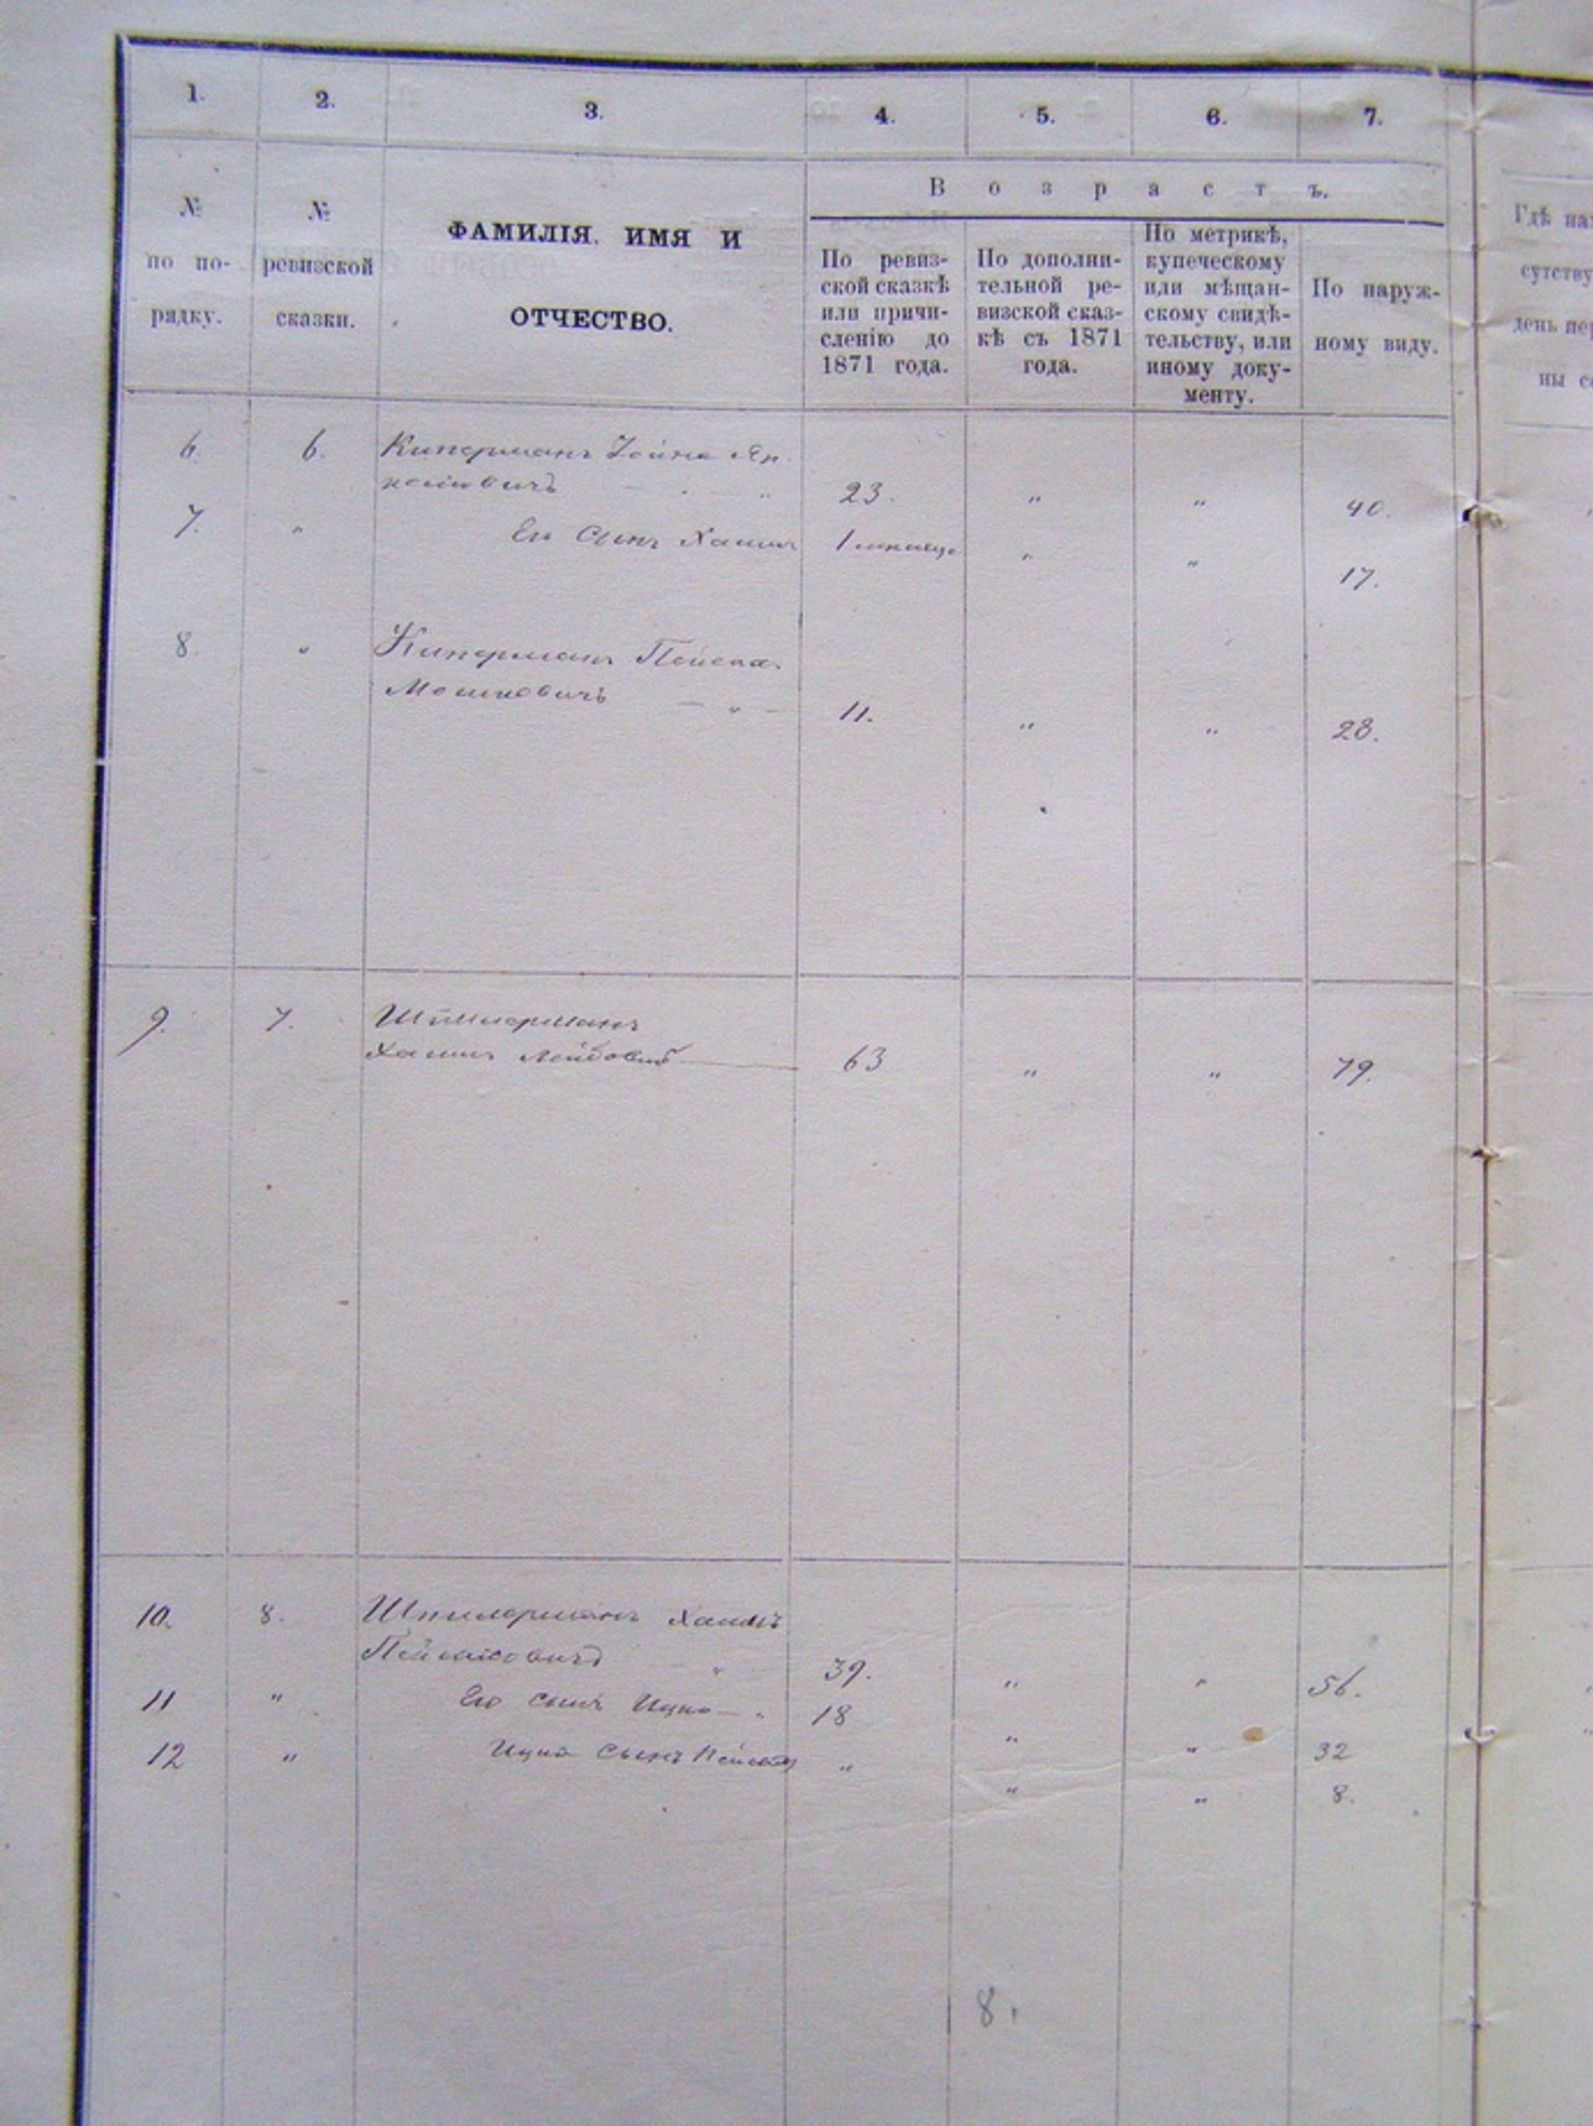 1. 2. 3. 4. 5. 6. 7.
В о з р а с т ъ.
№
по по-
рядку.
№
ревизской
сказки.
ФАМИЛІЯ, ИМЯ И
ОТЧЕСТВО.
По ревиз-
ской сказкѣ
или причи-
сленію до
1871 года.
По дополни-
тельной ре-
визской сказ-
кѣ съ 1871
года.
По метрикѣ,
купеческому
или мѣщан-
скому свидѣ-
тельству, или
иному доку-
менту.
По наруж-
ному виду.
Гдѣ на
сутству
день пе
ны с
6. 6. Киперманъ
23. " " 40.
7. " Его сынъ Хаимъ 1 " " 17.
8. " Киперманъ Пейсахъ
Мошковичъ " 11. " " 28.
9. 7. Шпилерманъ
Хаимъ Лейбовичъ 63 " " 79.
10. 8. Шпилерманъ Хаимъ
Пейсаховичъ " 39. " " 56.
11 " Его сынъ Ицко " 18 " " 32
12 " Ицки сынъ Пейсахъ " " " 8.
8.